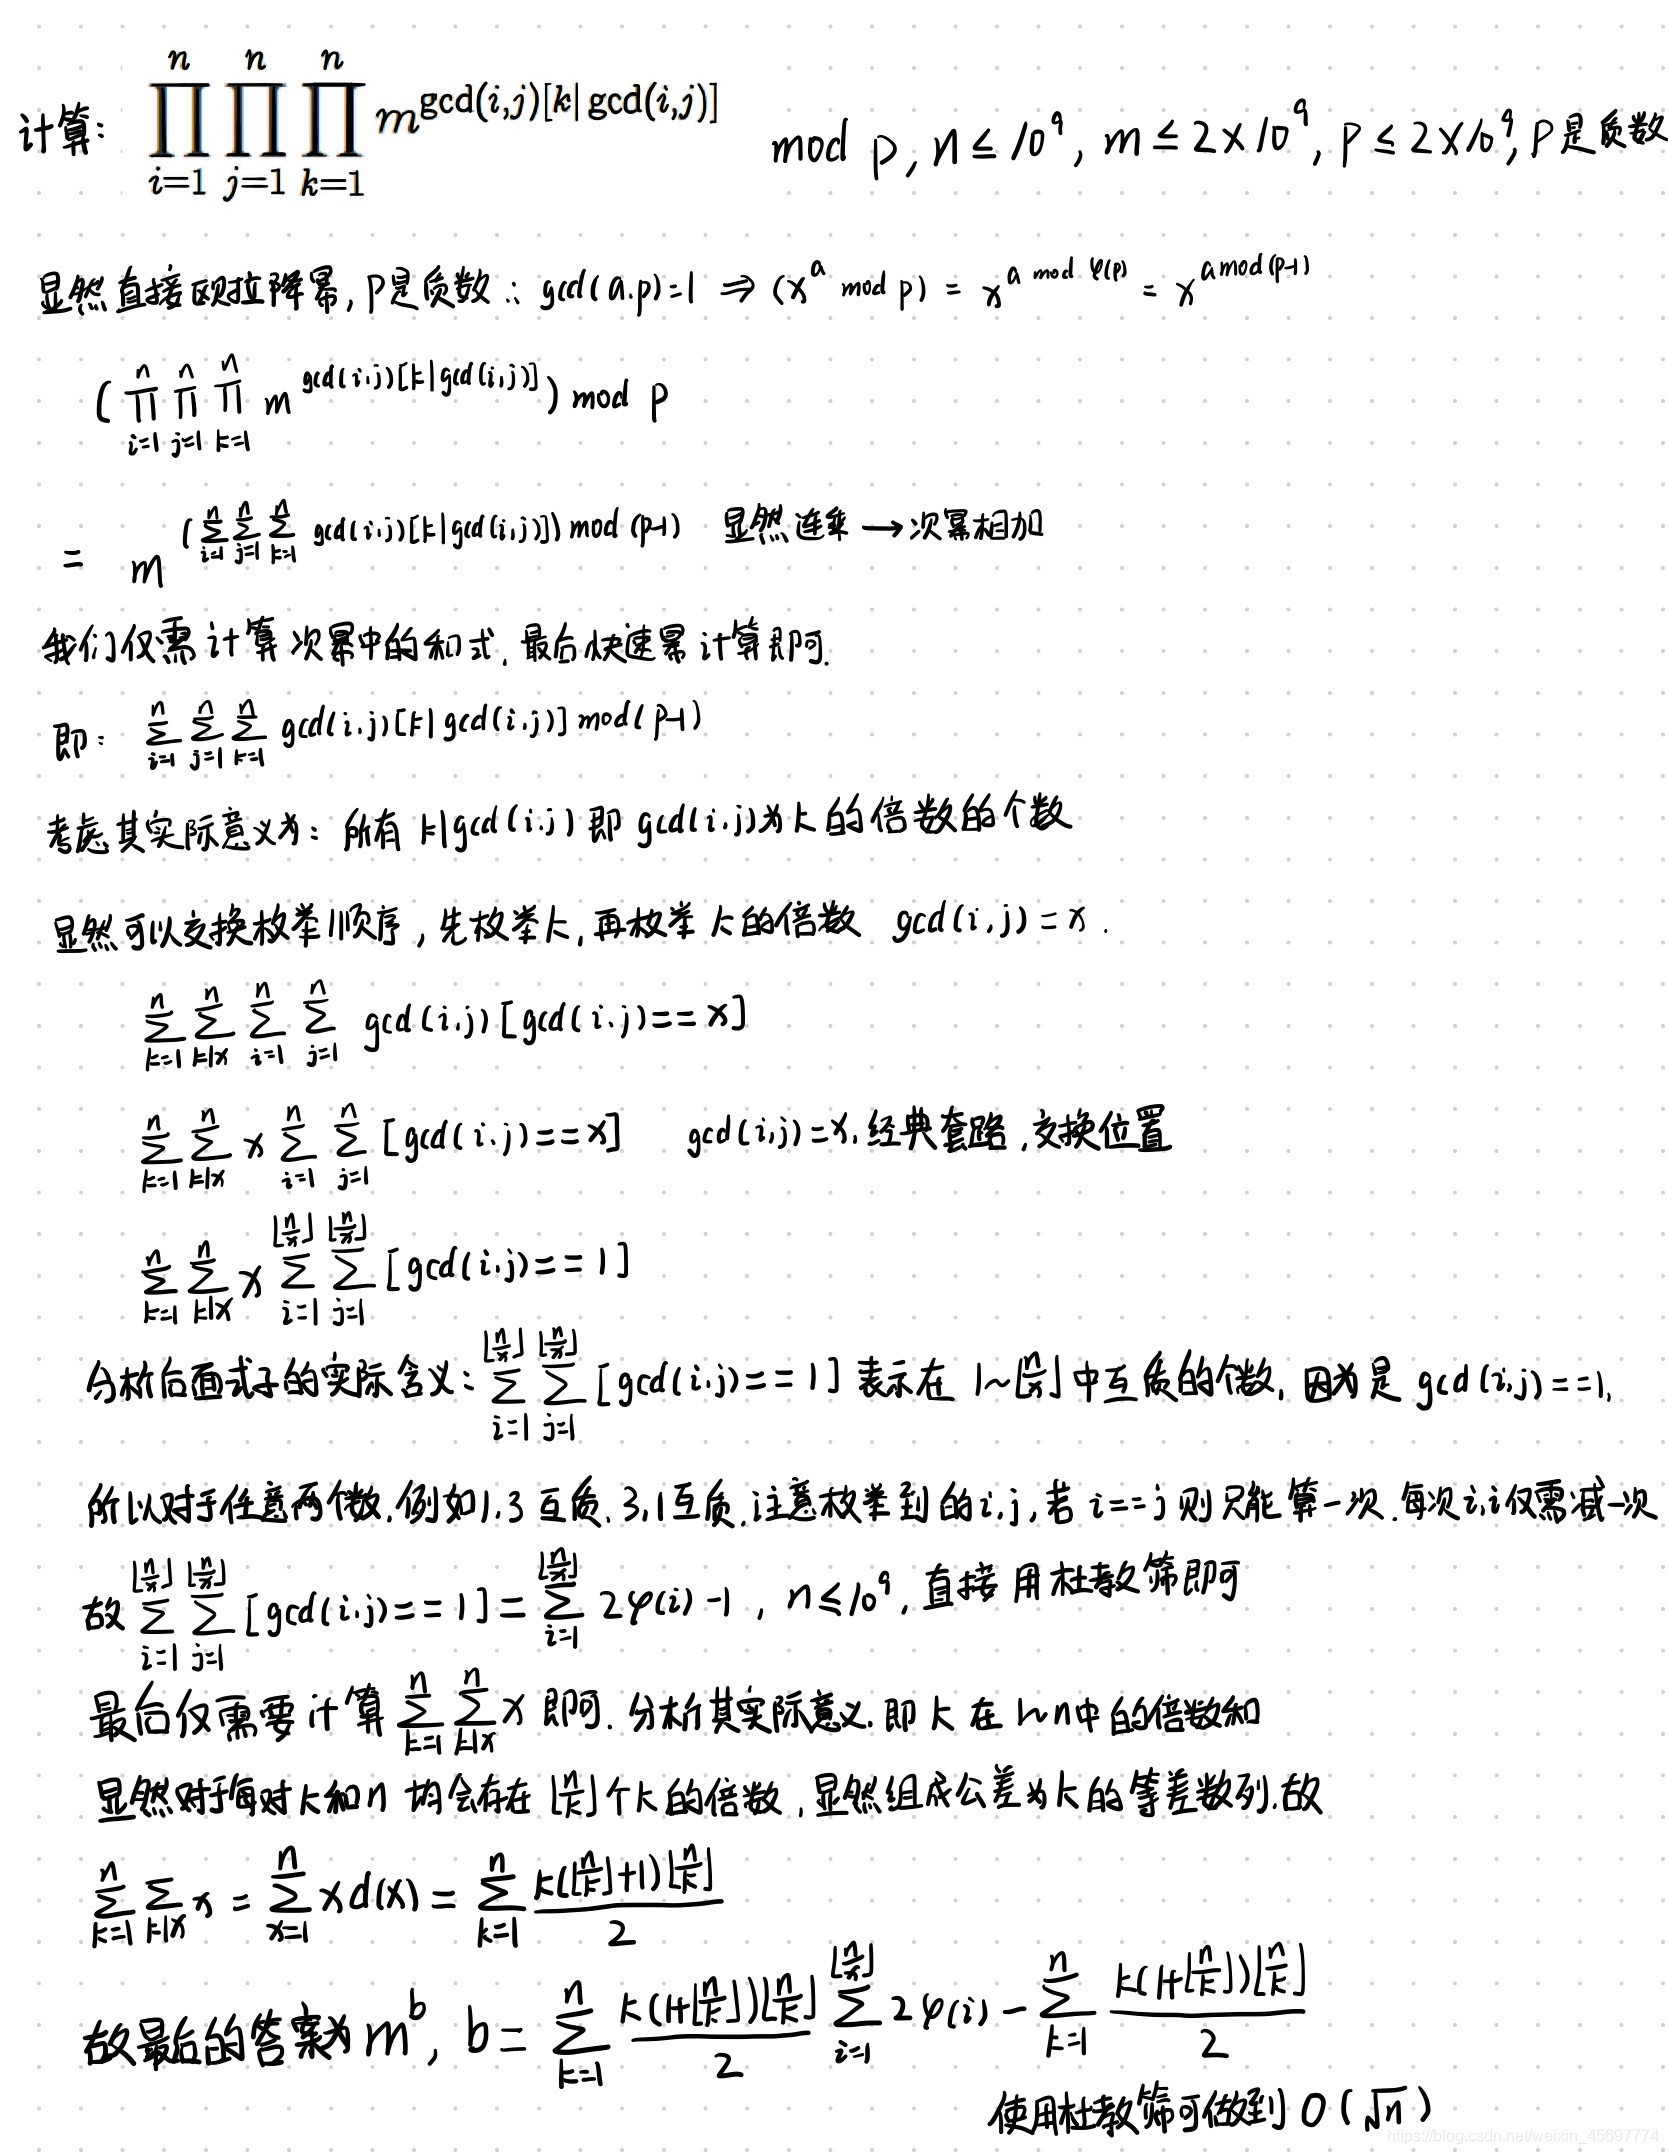 计算: \prod_{i=1}^{n} \prod_{j=1}^{n} \prod_{k=1}^{n} m^{gcd(i,j)[k|gcd(i,j)]} mod p, n ≤ 10^9, m ≤ 2×10^9, p ≤ 2×10^9, p是质数
显然直接欧拉降幂, p是质数 ∴ gcd(a.p)=1 ⇒ (x^a mod p) = x^{a mod φ(p)} = x^{a mod (p-1)}
(\prod_{i=1}^{n} \prod_{j=1}^{n} \prod_{k=1}^{n} m^{gcd(i,j)[k|gcd(i,j)]}) mod p
= m^{(\sum_{i=1}^{n} \sum_{j=1}^{n} \sum_{k=1}^{n} gcd(i,j)[k|gcd(i,j)]) mod (p-1)} 显然连乘 → 次幂相加
我们仅需计算次幂中的和式, 最后快速幂计算即可.
即: \sum_{i=1}^{n} \sum_{j=1}^{n} \sum_{k=1}^{n} gcd(i,j)[k|gcd(i,j)] mod(p-1)
考虑其实际意义为: 所有 k|gcd(i,j) 即 gcd(i,j)为k的倍数的个数
显然可以交换枚举顺序, 先枚举k, 再枚举k的倍数 gcd(i,j)=x.
\sum_{k=1}^{n} \sum_{k|x}^{n} \sum_{i=1}^{n} \sum_{j=1}^{n} gcd(i,j)[gcd(i,j)==x]
\sum_{k=1}^{n} \sum_{k|x}^{n} x \sum_{i=1}^{n} \sum_{j=1}^{n} [gcd(i,j)==x] gcd(i,j)=x, 经典套路, 交换位置
\sum_{k=1}^{n} \sum_{k|x}^{n} x \sum_{i=1}^{⌊n/x⌋} \sum_{j=1}^{⌊n/x⌋} [gcd(i,j)==1]
分析后面式子的实际含义: \sum_{i=1}^{⌊n/x⌋} \sum_{j=1}^{⌊n/x⌋} [gcd(i,j)==1] 表示在 1~⌊n/x⌋中互质的个数, 因为是 gcd(i,j)==1,
所以对于任意两个数, 例如1,3互质, 3,1互质, 注意枚举到的i,j, 若 i==j 则只能算一次. 每次i,i仅需减一次
故 \sum_{i=1}^{⌊n/x⌋} \sum_{j=1}^{⌊n/x⌋} [gcd(i,j)==1] = \sum_{i=1}^{⌊n/x⌋} 2φ(i)-1, n≤10^9, 直接用杜教筛即可
最后仅需要计算 \sum_{k=1}^{n} \sum_{k|x}^{n} x 即可. 分析其实际意义, 即 k 在 1~n中的倍数和
显然对于每对k和n 均会存在⌊n/k⌋个k的倍数, 显然组成公差为k的等差数列, 故
\sum_{k=1}^{n} \sum_{k|x} x = \sum_{x=1}^{n} xd(x) = \sum_{k=1}^{n} \frac{k(⌊n/k⌋+1)⌊n/k⌋}{2}
故最后的答案为 m^b, b = \sum_{k=1}^{n} \frac{k(1+⌊n/k⌋)⌊n/k⌋}{2} \sum_{i=1}^{⌊n/x⌋} 2φ(i) - \sum_{k=1}^{n} \frac{k(1+⌊n/k⌋)⌊n/k⌋}{2}
使用杜教筛可做到 O(√n)
https://blog.csdn.net/weixin_45697774